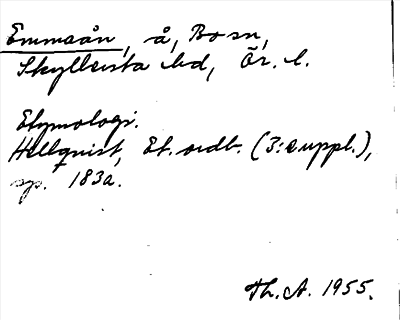 Emmaån, å, Bo sn,
Skyllersta hd, Ör. l.
Etymologi.
Hellquist, Et. ordb. (3:e uppl.),
sp. 183a.
Th. A. 1955.